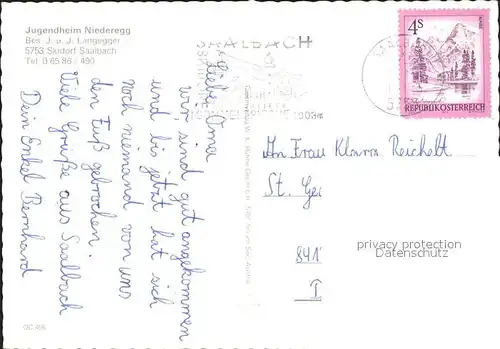 Jugendheim Niederegg
Bes. J. u. J. Langegger
5753 Skidorf Saalbach
Tel. 0 65 86 / 490
SAALBACH
1003m
4s
REPUBLIK ÖSTERREICH
Liebe Oma
wir sind gut angekommen
und bis jetzt hat sich
noch niemand von uns
den Fuß gebrochen.
Viele Grüße aus Saalbach
Dein Enkel Bernhard
An Frau Klara Reichelt
St. Ge
841
I
privacy protection
Datenschutz